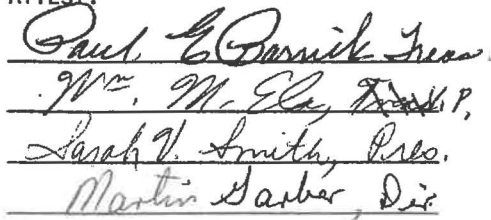 ATTEST:
Paul E Barnik Treas.
Wm. M. Ela, V. P,
Sarah V. Smith, Pres.
Martin Garber, Dir